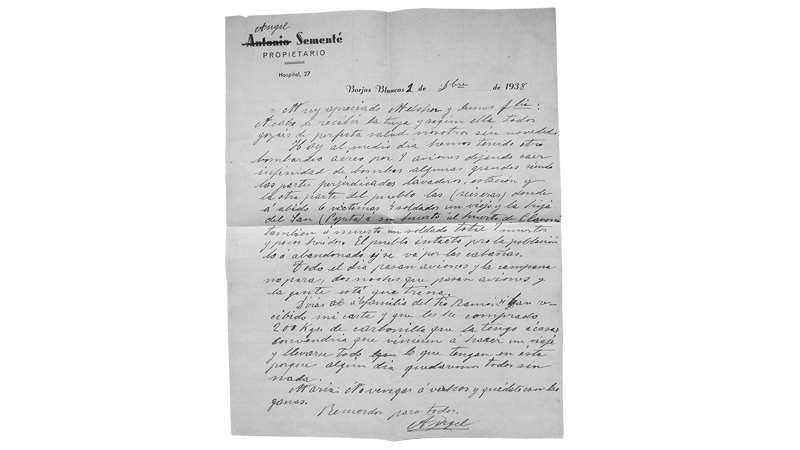 Angel
Antonio Sementé
PROPIETARIO
Hospital, 27
Borjas Blancas 2 de Dbre de 1938
Muy apreciado Melchor y demas flia.
Acabo de recibir la tuya y segun ella todos
gozais de perfecta salud, nosotros sin novedad.
Hoy al medio dia hemos tenido otro
bombardeo aereo por 9 aviones dejando caer
infinidad de bombas algunas grandes siendo
las partes perjudicadas lavaderos, estación y
la otra parte del pueblo las (reseras) donde
a abido 6 victimas soldados un viejo y la hija
del San (Pepeta) a su huerto al huerto de
también á muerto un soldado total 7 muertos
y pocos heridos. El pueblo intacto pero la población
lo á abandonado y se vá por las cabañas.
Todo el dia pasan aviones y la campana
no para, dos noches que pasan aviones y
la gente está que trina.
Dirás á la familia del tío Ramon si han re-
cibido mi carta y que les he comprado
200 Kgs. de carbonilla que la tengo á casa,
convendria que vinieran á hacer un viaje
y llevarse todo lo que tengan en ésta
porque algun dia quedaremos todos sin
nada.
Maria: No vengas á vernos y quédate con las
ganas.
Recuerdos para todos.
Angel